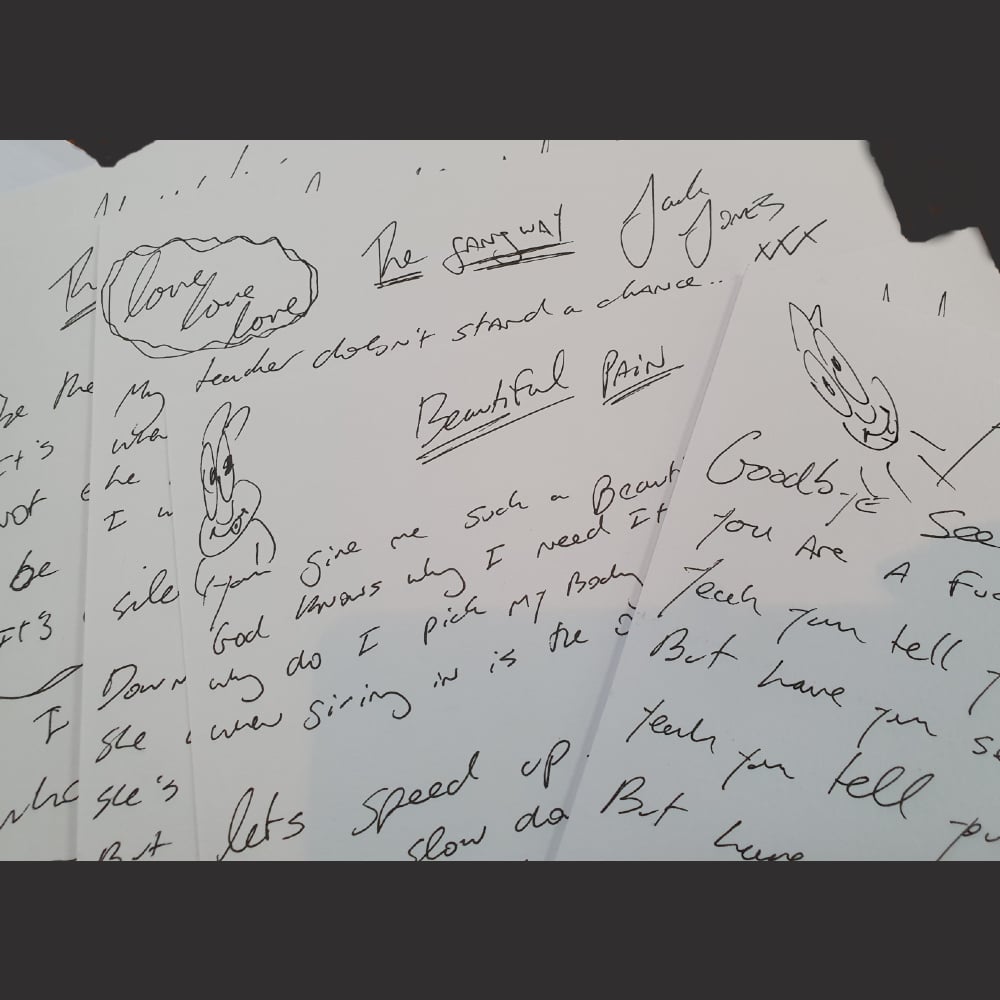 Th
the
It's
not
be
It's
I
love
love
love
The GANGWAY
Jack
JONES
xxx
My teacher doesn't stand a chance..
she
I
Down
she
she's
But
Beautiful PAIN
You give me such a Beaut
God knows why I need It
why do I pick My Body
when giving in is the
lets speed up
slow do
Goodbye See
You Are A Fuc
Yeah you tell
But have you s
Yeah you tell you
But have